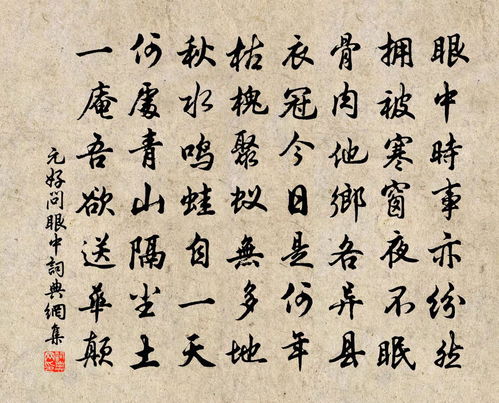 眼中時事亦紛然
拥被寒窗夜不眠
骨肉他鄉各异县
衣冠今日是何年
枯槐聚蚁無多地
秋水鸣蛙自一天
何處青山隔尘土
一庵吾欲送華颠
元好问眼中詞典網集